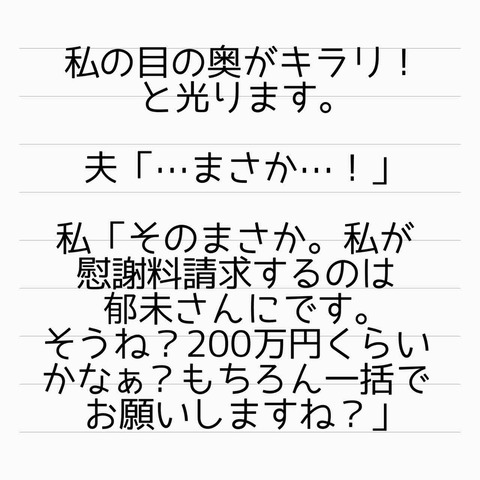 私の目の奥がキラリ！
と光ります。
夫「…まさか…！」
私「そのまさか。私が
慰謝料請求するのは
郁未さんにです。
そうね？200万円くらい
かなぁ？もちろん一括で
お願いしますね？」